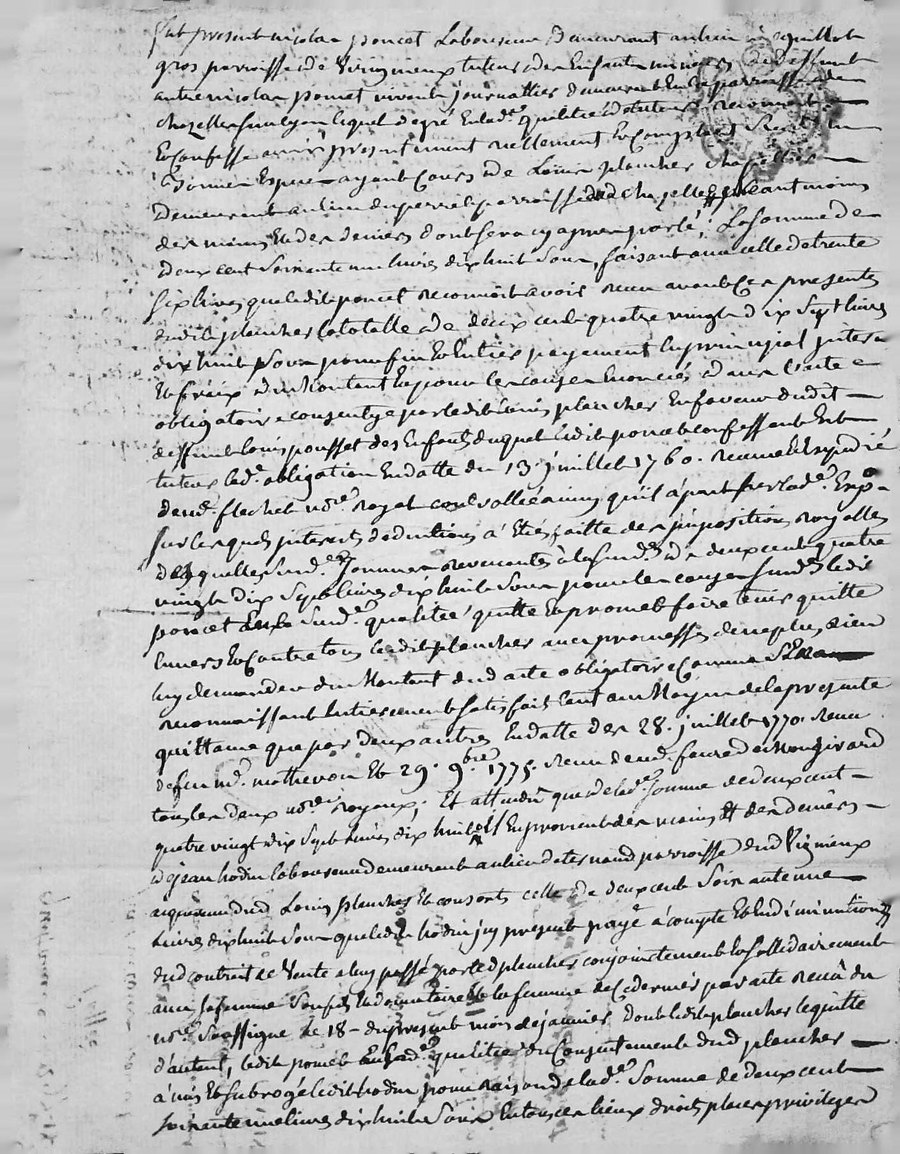 fut present nicolas poncet Laboureur demeurant au lieu de
gros parroisse de Viregneux tuteur des Enfants mineurs de deffunt
autre nicolas poncet vivant journallier demeurant En la parroisse de
chazelles sur lyon lequel de gré En lad.e qualité de tuteur reconnoit
Et Confesse avoir presentement réellement Et Comptant Receu en
Bonnes Espèces ayant Cours de Louis plancher
demeurant au lieu du perret parroisse dud. chazelles présent
des mains Et des deniers dont sera cy apres parlé; La somme de
deux cent soixante une livres dix huit sous, faisant avec celle de trente
six livres que ledit poncet reconnoit avoir receu avant Ces presentes
dudit plancher la totalle de deux cent quatre vingt dix sept livres
dix huit sous pour fin Et Entier payement en principal interets
Et fraix du Montant Et pour les causes Enoncées dans l'acte
obligatoire consenty par ledit Louis plancher En faveur dudit
deffunt Louis pousset des Enfants duquel Ledit poncet confessant Est
tuteur lad.e obligation En datte du 13. juillet 1760. receue Et
de m.e flachet no.re royal
sur lesquels interets déductions à Eté faitte des impositions royalles
desquelles susd.es sommes revenantes à la susd.e de deux cent quatre
vingt dix sept livres dix huit sous pour les causes susd.es ledit
poncet En la susd.e qualité quitte Et promet faire tenir quitte
Envers Et Contre tous ledit plancher avec promesse de ne plus rien
luy demander du Montant dud. acte obligatoire Comme S'En
reconnoissant Entierement satisfait tant au Moyen de la presente
quittance que par deux autres En datte des 28. juillet 1770. receu
defeu m.e matheron Et 29. 9.bre 1775. receu de m.e
tous les deux no.res royaux; Et attendu que de lad.e somme de deux cent
quatre vingt dix sept livres dix huit sous Il En provient des mains Et des deniers
de jean hodin laboureur demeurant au lieu de parroisse dud. Virigneux
acquereur dud. Louis plancher Et consorts celle de deux cent soixante une
Livres dix huit sous que ledit hodin icy present paye à compte Et En diminution
du contrat de Vente a luy passé par led. plancher conjointement Et sollidairement
avec sa femme la femme de Ce dernier par acte receu du
no.re Soussigné le 18 du present mois de janvier dont ledit plancher le quitte
d'autant, ledit poncet En sad.e qualité du Consentement dud. plancher
à mis Et subrogé ledit hodin pour raison de lad.e Somme de deux cent
soixante une livres dix huit sous En tous ses lieux droits places privileges